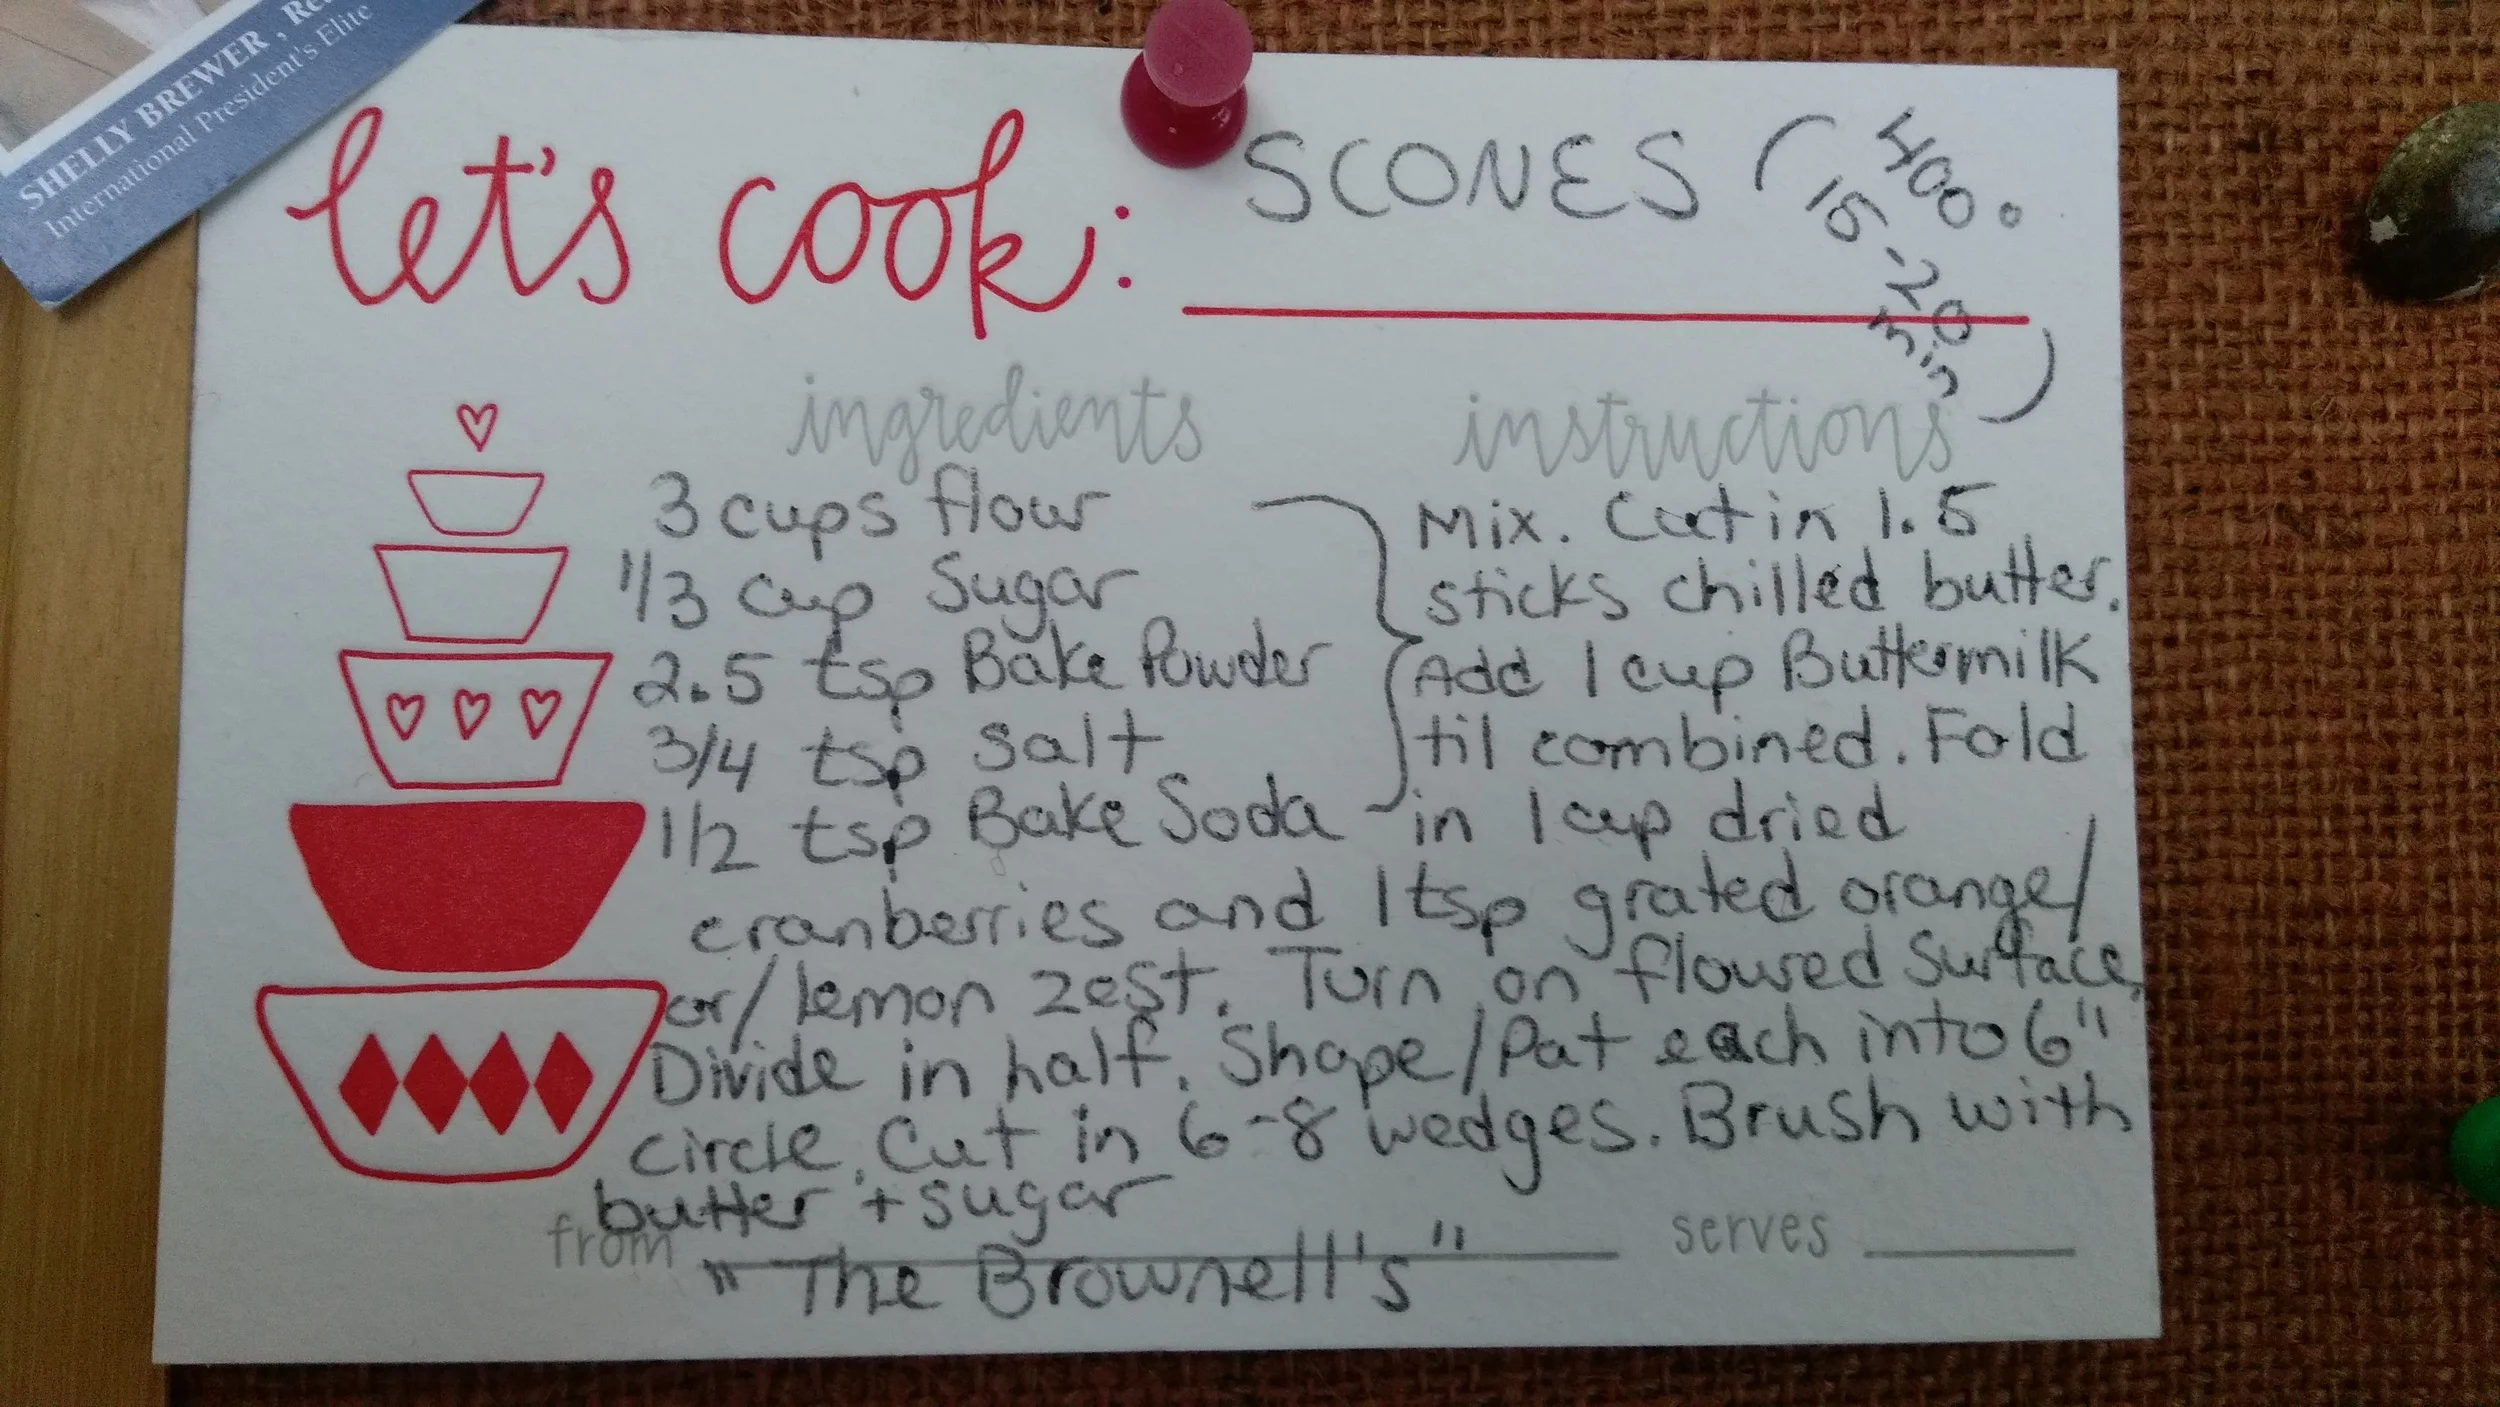 SHELLY BREWER,
International President's Elite
let's cook: SCONES (400°
15-20
min)
ingredients
instructions
3 cups flour
1/3 cup Sugar
2.5 tsp Bake Powder
3/4 tsp salt
1/2 tsp Bake Soda
Mix. Cut in 1.5
sticks chilled butter.
Add 1 cup Buttermilk
til combined. Fold
in 1 cup dried
cranberries and 1 tsp grated orange/
or/lemon zest. Turn on floured surface.
Divide in half. Shape/Pat each into 6"
circle. Cut in 6-8 wedges. Brush with
butter + sugar
from "The Brownell's"
serves